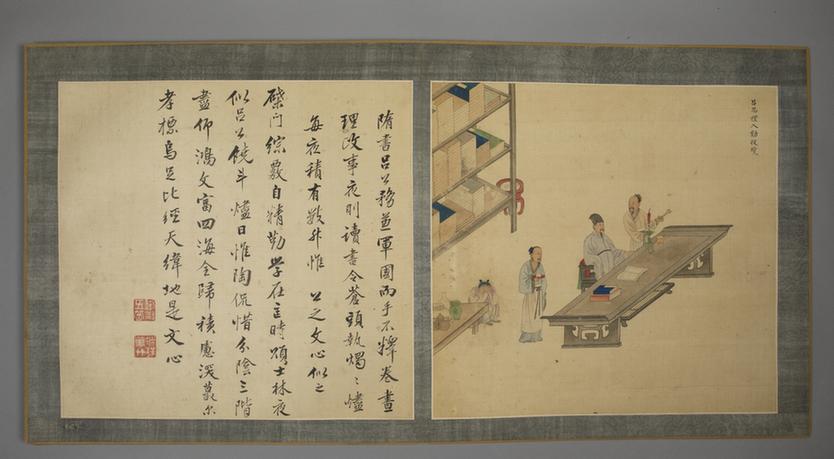 吕思禮入勤披覽
隋書呂公務兼軍國而手不釋卷晝
理政事夜則讀書令蒼頭執燭〻燼
每夜積有數升惟 公之文心似之
棨门綜覈自精勤學在官時頌士林夜
似呂公饒斗燼日惟陶侃惜分陰三階
盡仰鴻文富四海全歸積慮深慕尒
孝標烏足比經天緯地是文心